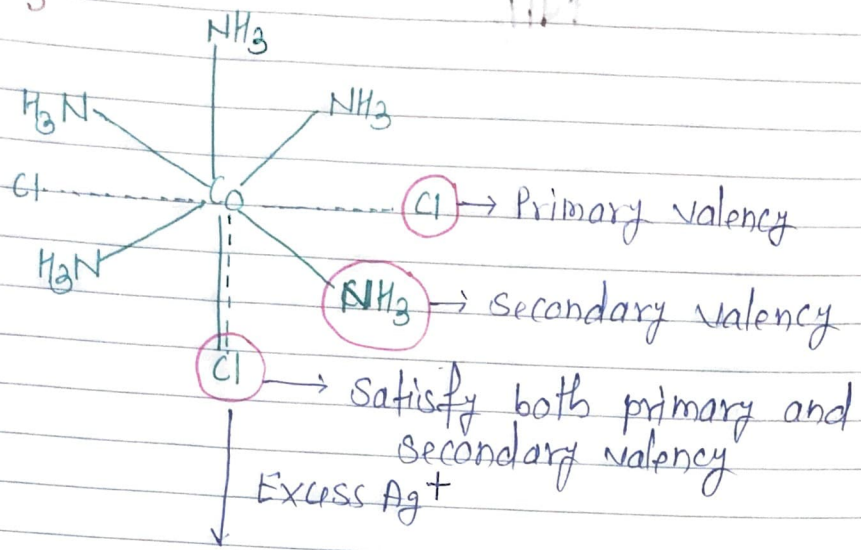 NH3
H3N
NH3
Cl
Co
Cl → Primary valency
H3N
NH3 → Secondary valency
Cl → Satisfy both primary and
secondary valency
Excess Ag+